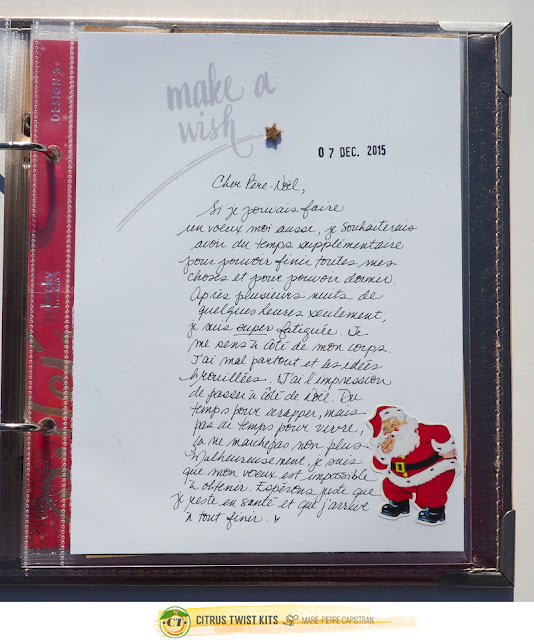 make a
wish
07 DEC. 2015
Cher Père-Noël,
Si je pouvais faire
un voeux moi aussi, je souhaiterais
avoir du temps supplémentaire
pour pouvoir finir toutes mes
choses et pour pouvoir dormir.
Après plusieurs nuits de
quelques heures seulement,
je suis super fatiguée. Je
me sens à côté de mon corps.
J'ai mal partout et les idées
brouillées. J'ai l'impression
de passer à côté de Noël. Du
temps pour scrapper, mais
pas de temps pour vivre,
ça ne marche pas non plus.
Malheureusement, je sais
que mon voeux est impossible
à obtenir. Espérons juste que
je reste en santé et que j'arrive
à tout finir.
DESIGN
CT
CITRUS TWIST KITS
MARIE-PIERRE CAPISTRAN